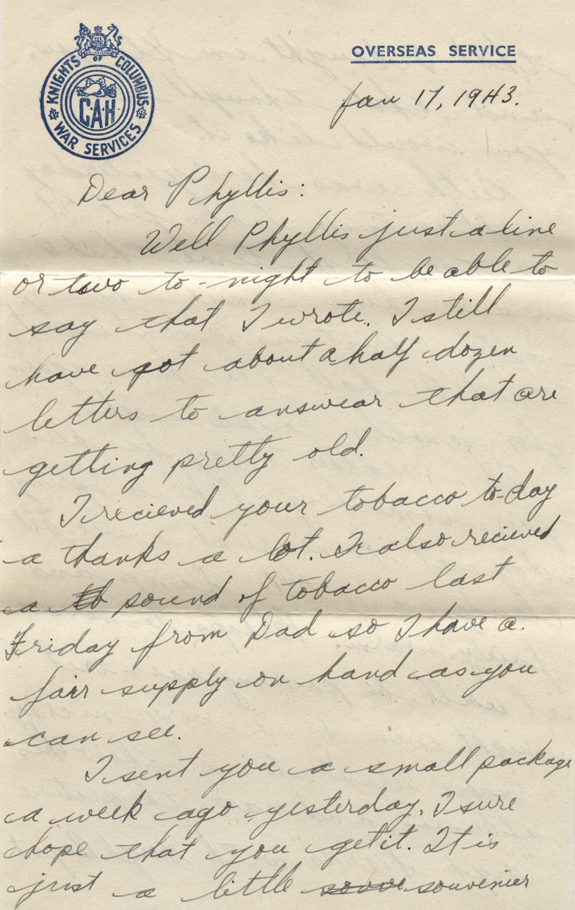 KNIGHTS OF COLUMBUS
CAH
WAR SERVICES
OVERSEAS SERVICE
Jan 17, 1943.
Dear Phyllis:
Well Phyllis just a line
or two to-night to be able to
say that I wrote. I still
have got about a half dozen
letters to answear that are
getting pretty old.
I recieved your tobacco to-day
a thanks a lot. I also recieved
a pound of tobacco last
Friday from Dad so I have a
fair supply on hand as you
can see.
I sent you a small package
a week ago yesterday. I sure
hope that you get it. It is
just a little souvenier